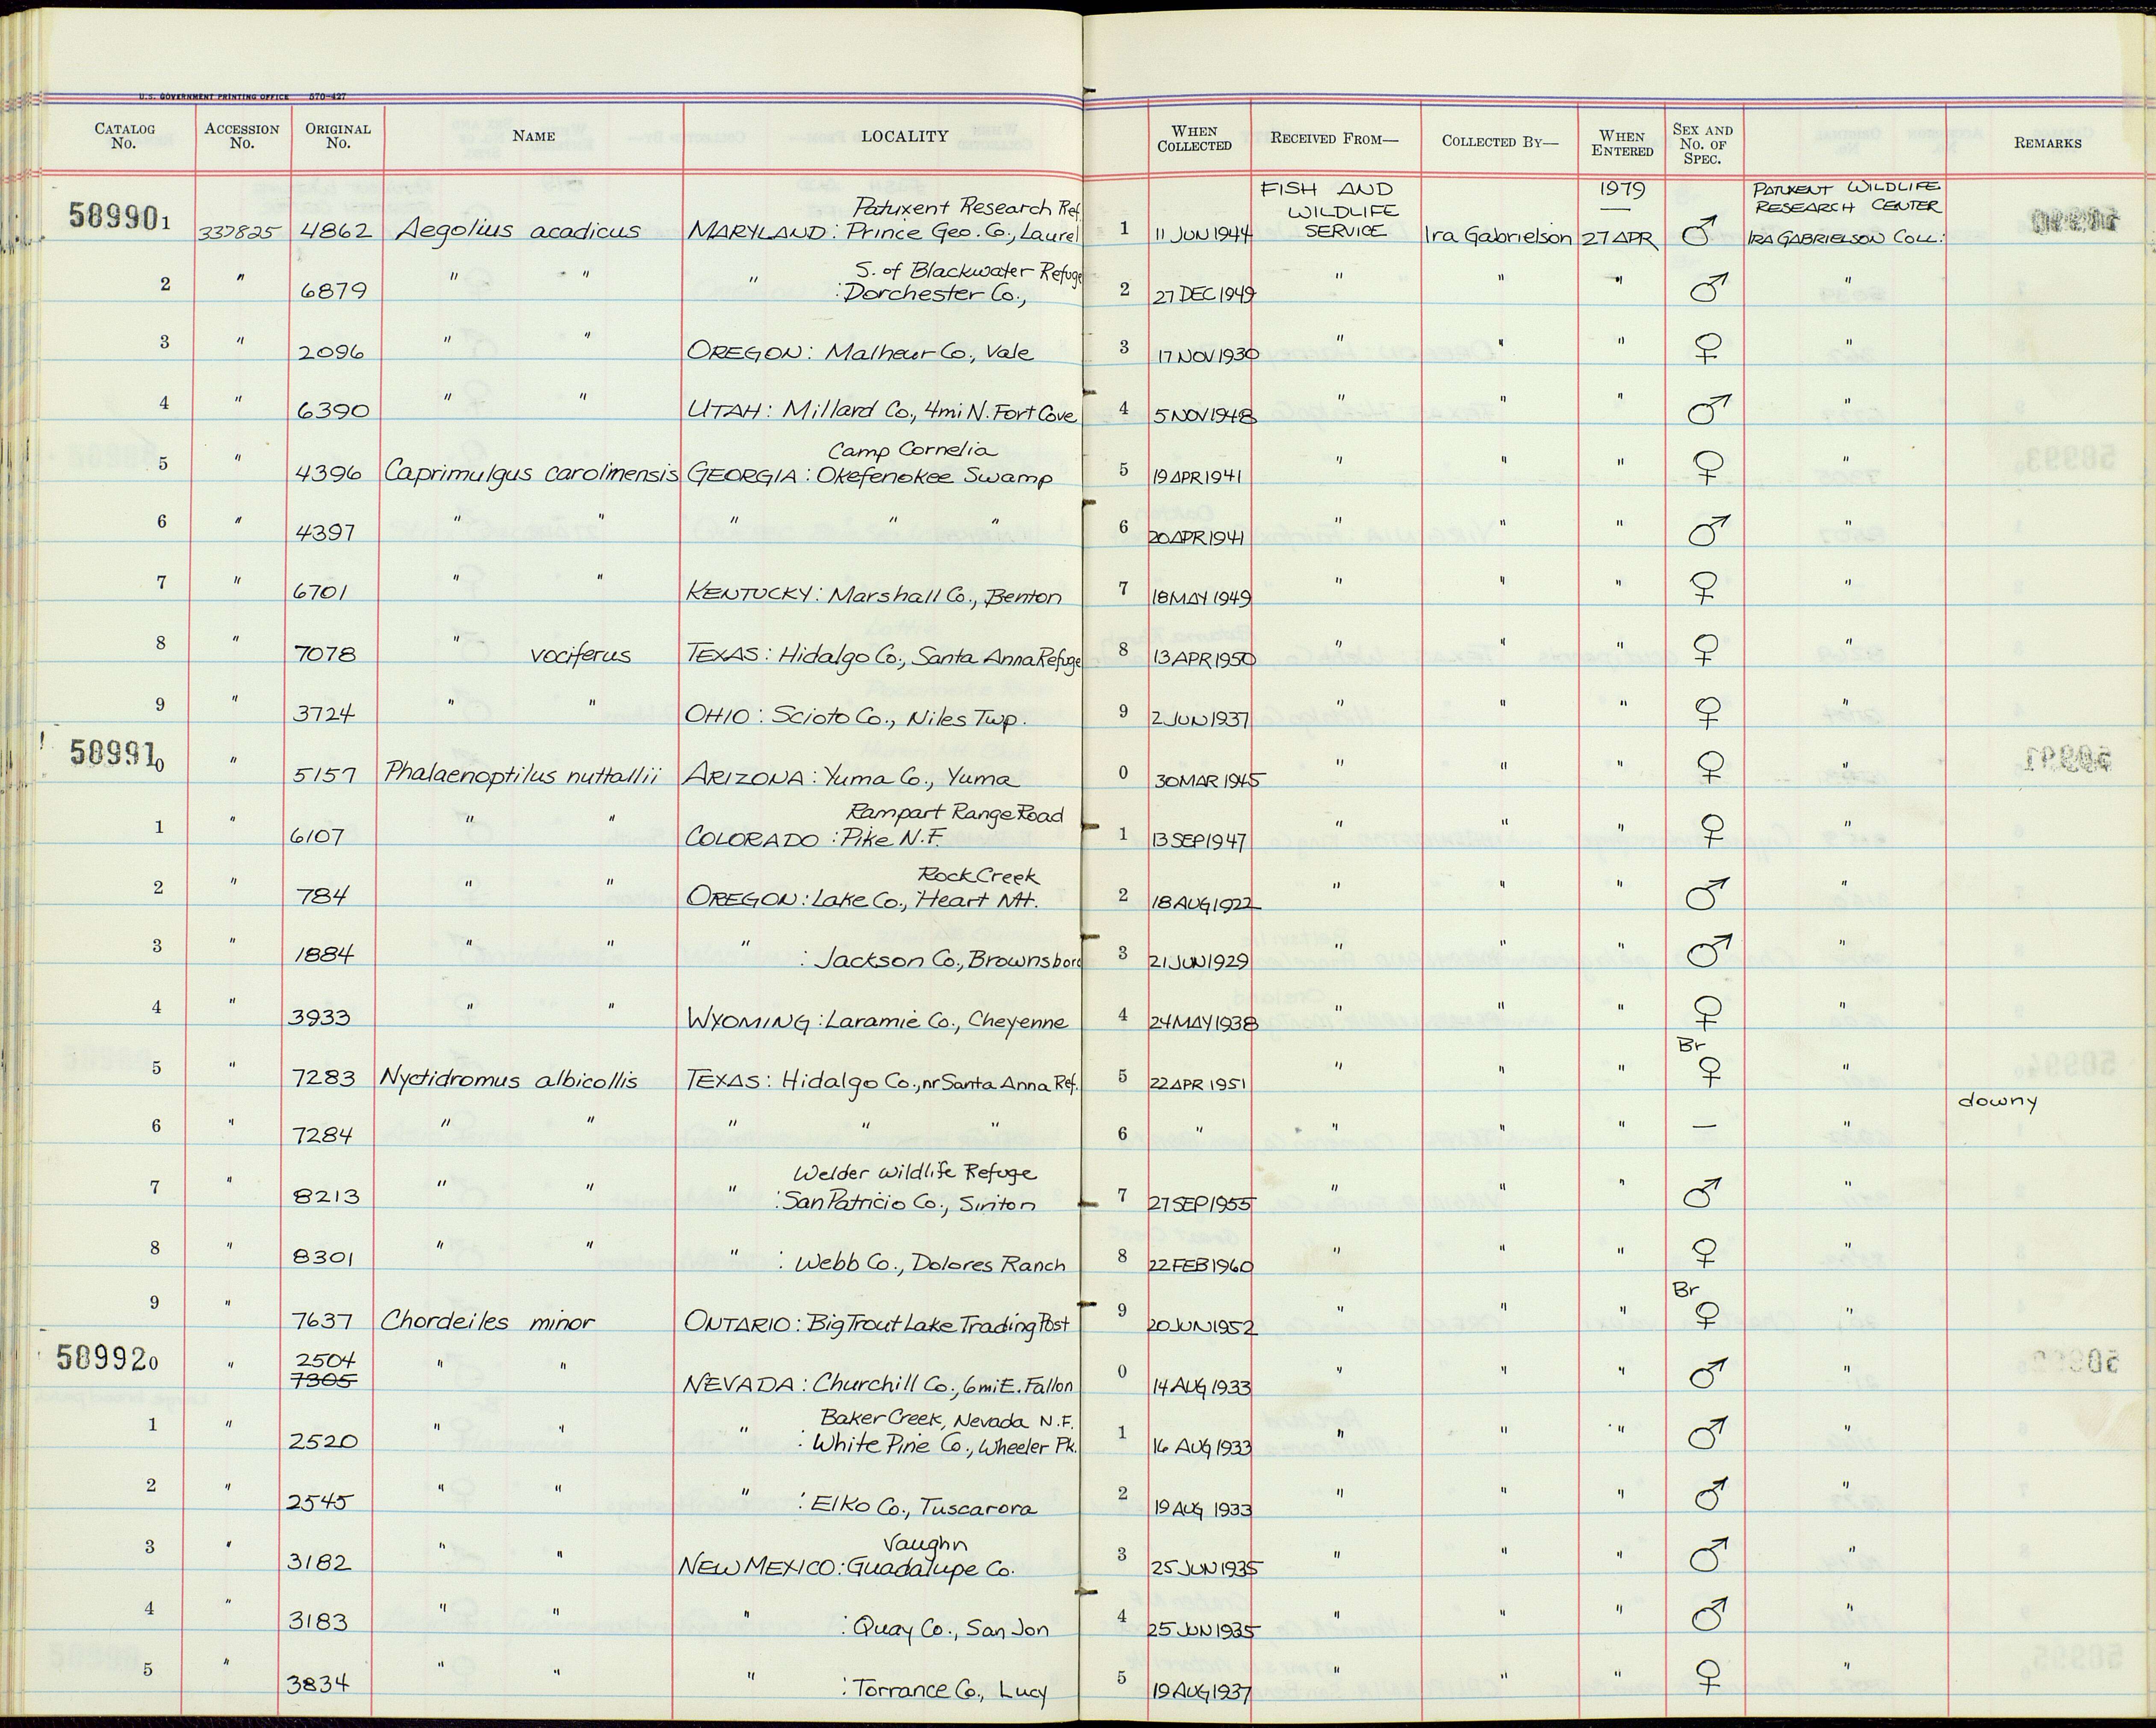 U.S. GOVERNMENT PRINTING OFFICE 570-427
CATALOG No. ACCESSION No. ORIGINAL No. NAME LOCALITY WHEN COLLECTED RECEIVED FROM— COLLECTED BY— WHEN ENTERED SEX AND No. OF SPEC. REMARKS
Patuxent Research Ref. FISH AND WILDLIFE SERVICE 1979 PATUXENT WILDLIFE RESEARCH CENTER
589901 337825 4862 Aegolius acadicus MARYLAND: Prince Geo. Co., Laurel 1 11 JUN 1944 Ira Gabrielson 27 APR ♂ IRA GABRIELSON COLL:
S. of Blackwater Refuge
2 " 6879 " " " : Dorchester Co., 2 27 DEC 1949 " " " ♂ "
3 " 2096 " " OREGON: Malheur Co., Vale 3 17 NOV 1930 " " " ♀ "
4 " 6390 " " UTAH: Millard Co., 4mi N. Fort Cove 4 5 NOV 1948 " " " ♂ "
Camp Cornelia
5 " 4396 Caprimulgus carolinensis GEORGIA: Okefenokee Swamp 5 19 APR 1941 " " " ♀ "
6 " 4397 " " " " " 6 20 APR 1941 " " " ♂ "
7 " 6701 " " KENTUCKY: Marshall Co., Benton 7 18 MAY 1949 " " " ♀ "
8 " 7078 " vociferus TEXAS: Hidalgo Co., Santa Anna Refuge 8 13 APR 1950 " " " ♀ "
9 " 3724 " " OHIO: Scioto Co., Niles Twp. 9 2 JUN 1937 " " " ♀ "
589910 " 5157 Phalaenoptilus nuttallii ARIZONA: Yuma Co., Yuma 0 30 MAR 1945 " " " ♀ "
Rampart Range Road
1 " 6107 " " COLORADO: Pike N.F. 1 13 SEP 1947 " " " ♀ "
Rock Creek
2 " 784 " " OREGON: Lake Co., Heart Mt. 2 18 AUG 1922 " " " ♂ "
3 " 1884 " " " : Jackson Co., Brownsboro 3 21 JUN 1929 " " " ♂ "
4 " 3933 " " WYOMING: Laramie Co., Cheyenne 4 24 MAY 1938 " " " ♀ "
Br
5 " 7283 Nyctidromus albicollis TEXAS: Hidalgo Co., nr Santa Anna Ref. 5 22 APR 1951 " " " ♀ "
6 " 7284 " " " " " 6 " " " " — " downy
Welder Wildlife Refuge
7 " 8213 " " " : San Patricio Co., Sinton 7 27 SEP 1955 " " " ♂ "
8 " 8301 " " " : Webb Co., Dolores Ranch 8 22 FEB 1960 " " " ♀ "
Br
9 " 7637 Chordeiles minor ONTARIO: Big Trout Lake Trading Post 9 20 JUN 1952 " " " ♀ "
2504
589920 " 7305 " " NEVADA: Churchill Co., 6mi E. Fallon 0 14 AUG 1933 " " " ♂ "
Baker Creek, Nevada N.F.
1 " 2520 " " " : White Pine Co., Wheeler Pk. 1 16 AUG 1933 " " " ♂ "
2 " 2545 " " " : Elko Co., Tuscarora 2 19 AUG 1933 " " " ♂ "
Vaughn
3 " 3182 " " NEW MEXICO: Guadalupe Co. 3 25 JUN 1935 " " " ♂ "
4 " 3183 " " " : Quay Co., San Jon 4 25 JUN 1935 " " " ♂ "
5 " 3834 " " " : Torrance Co., Lucy 5 19 AUG 1937 " " " ♀ "